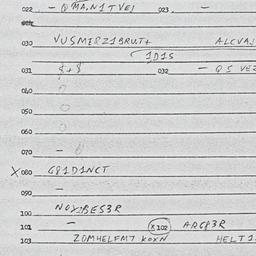 022 - QMA.N1TVEI 023. -
030 VUSMERZ1BRUT+ ALCVAJ
1D1S
031 {+} 032 - Q5 VEZ
040 0
050 0
060 0
070 -
X 080 G81D1NCT
090 -
100 NOX:BES3R
101 - X 102 ARC83R
103 ZOMHELFM7 KOXN HELT1